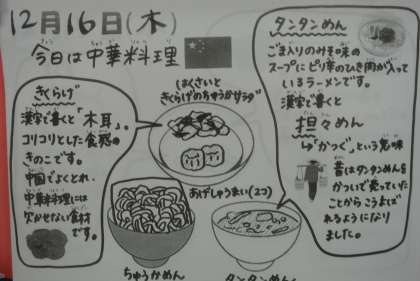 12月16日(木)
今日は中華料理
きくらげ
漢字で書くと「木耳」。
コリコリとした食感の
きのこです。
中国でよくとれ、
中華料理には
欠かせない食材
です。
はくさいと
きくらげのちゅうかサラダ
あげしゅうまい(2コ)
ちゅうかめん
タンタンめん
タンタンめん
ごま入りのみそ味の
スープにピリ辛のひき肉が入って
いるラーメンです。
漢字で書くと
担々めん
"かつぐ"という意味
昔はタンタンめんを
かついで売っていた
ことからこうよば
れるようになり
ました。